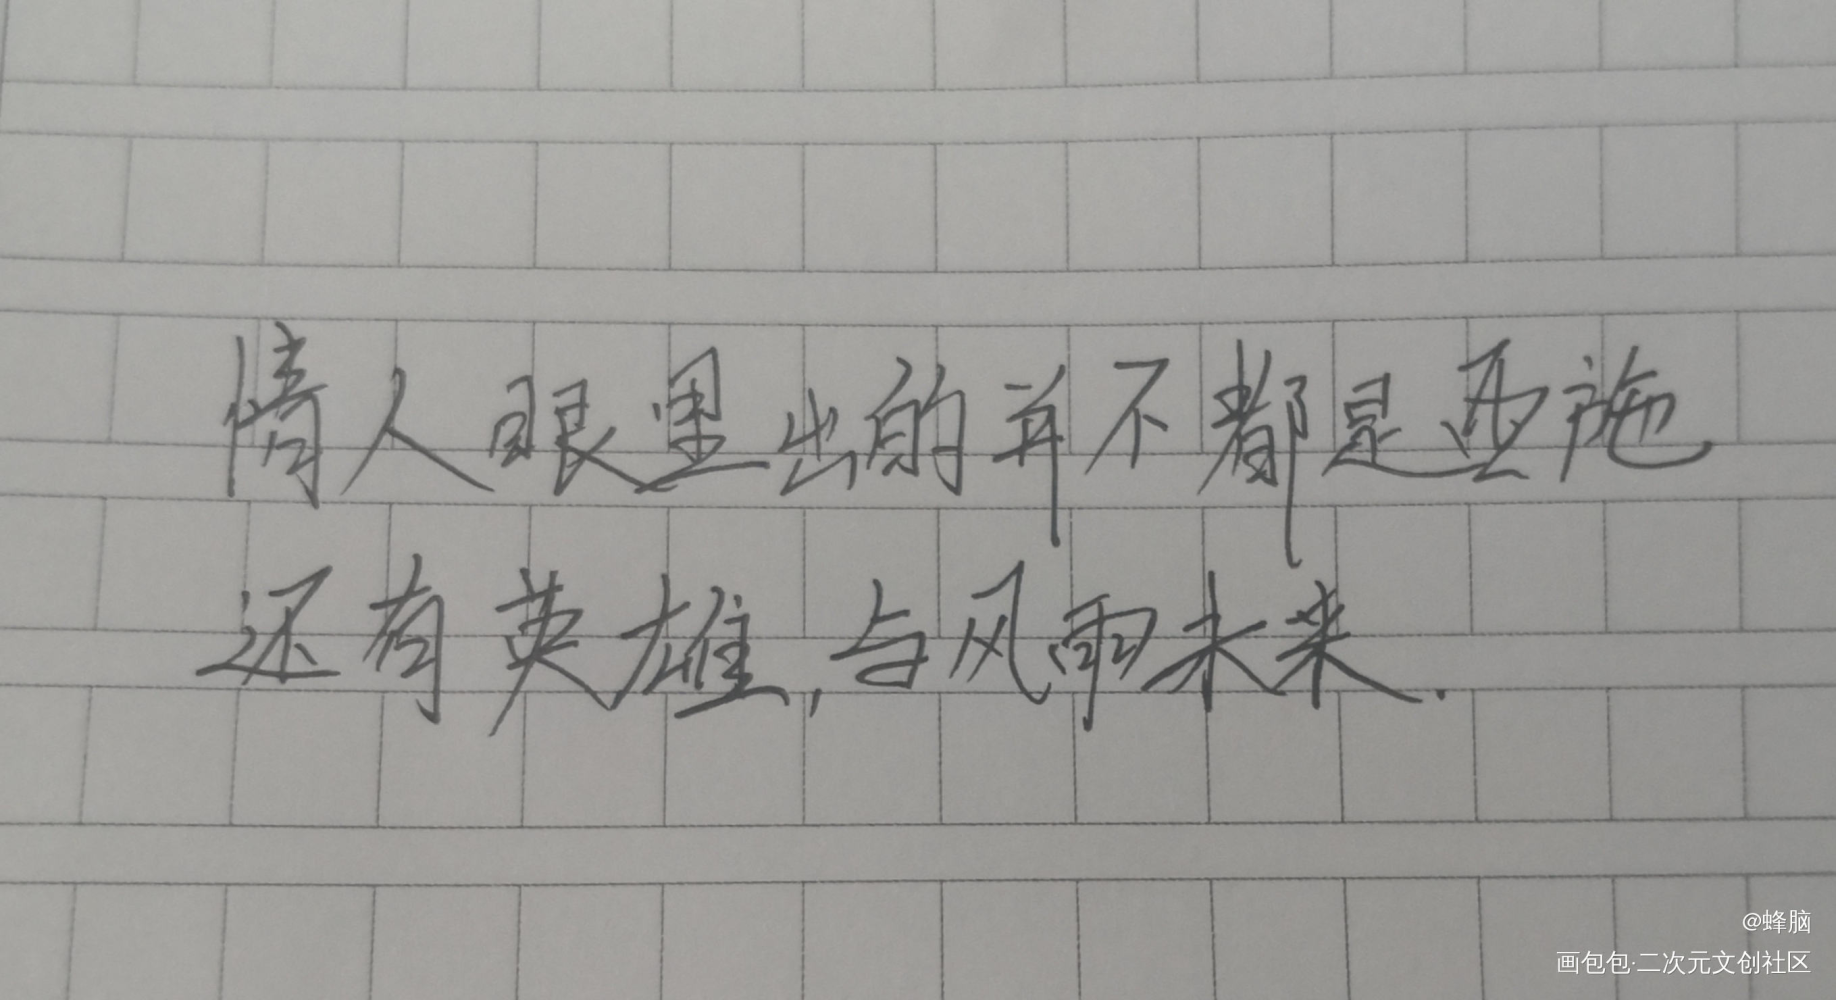 情人眼里出的并不都是西施
还有英雄,与风雨未来.
@蜂脑
画包包·二次元文创社区